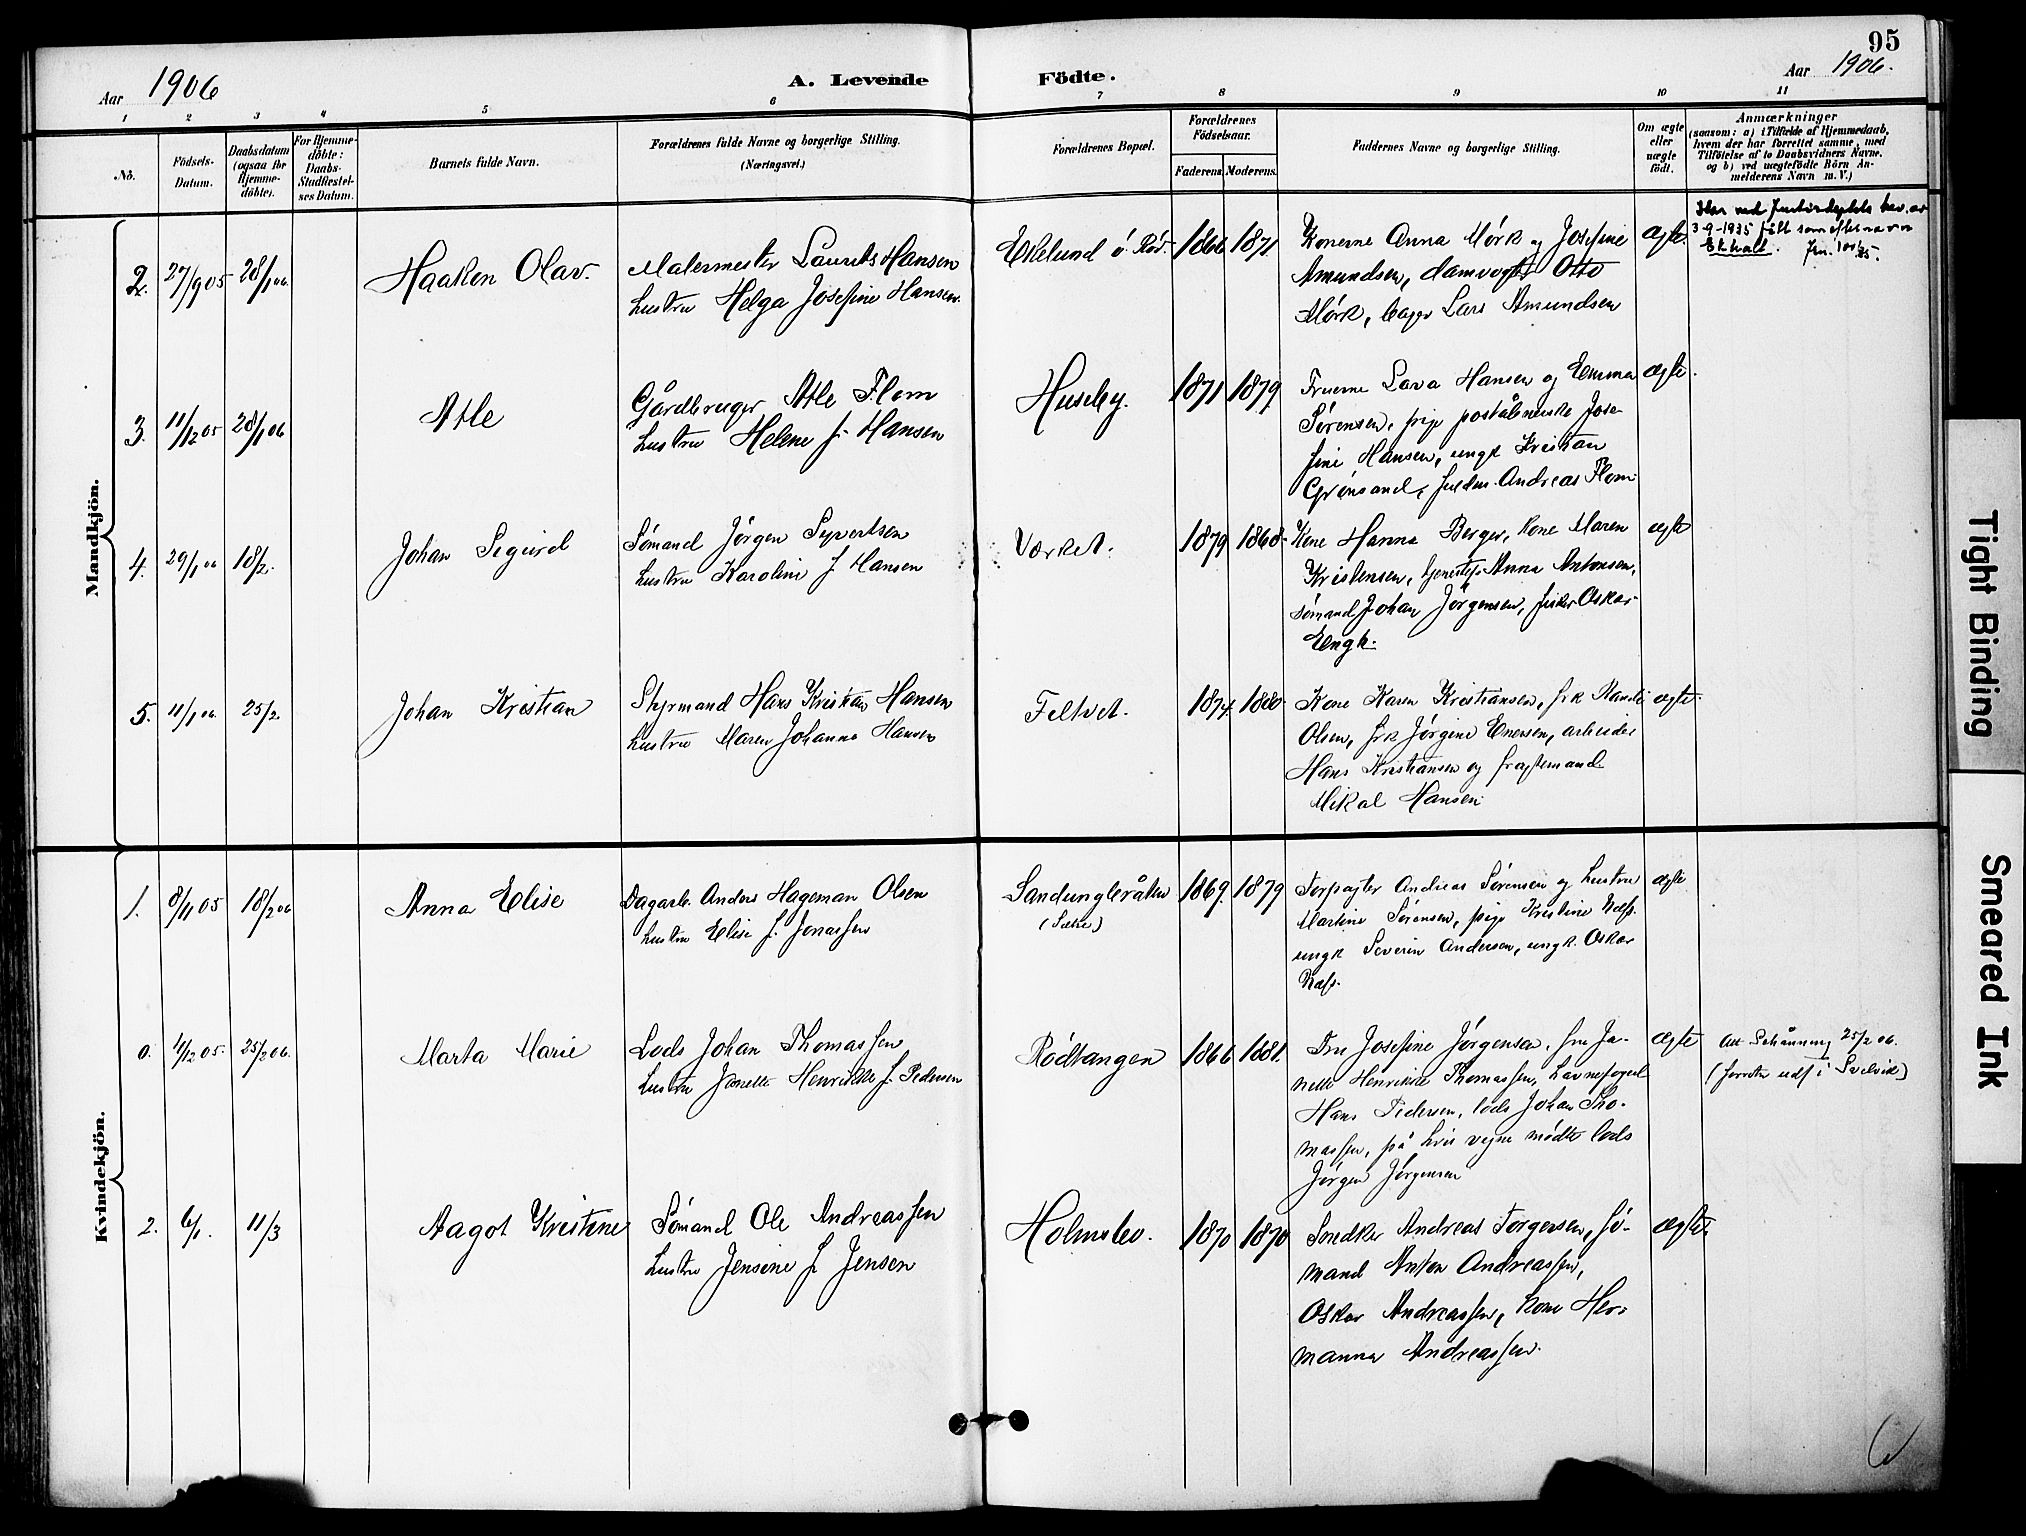 95
Aar 1906
A. Levende Födte.
Aar 1906.
1 2 3 4 5 6 7 8 9 10 11
No.
Födsels-Datum.
Daabsdatum (ogsaa for Hjemme-döbte).
For Hjemme-döbte: Daabs-Stadfæstel-ses Datum.
Barnets fulde Navn.
Forældrenes fulde Navne og borgerlige Stilling.
(Næringsvei.)
Forældrenes Bopæl.
Forældrenes Födselsaar.
Faderens Moderens
Faddernes Navne og borgerlige Stilling.
Om ægte eller uægte födt.
Anmærkninger
(saasom: a) i Tilfælde af Hjemmedaab,
hvem der har forrettet samme, med
Tilföielse af to Daabsvidners Navne,
og b) ved uægtefödte Börn An-
melderens Navn m. V.)
Mandkjön.
2. 27/9 05 28/1 06 Haakon Olav. Malermester Laurits Hansen Ekelund ö. Rød. 1866 1871 Konerne Anna Mørk og Josefine ægte.
hustru Helga Josefine Hansen
Amundsen, damvogt Otto
Mørk, bager Lars Amundsen
Har ved Justisdeptets bev. av
3-9-1935 fått som efternavn
Ekhall.
3. 11/12 05 28/1 06 Atle Gårdbruger Atle Flom Huseby. 1871 1879 Fruerne Lava Hansen og Emma ægte.
hustru Helene f. Hansen
Sørensen, pige poståbnerske Jose-
fine Hansen, ungk Kristian
Grönsand, Andreas Flom
4. 29/1 06 18/2. Johan Sigurd Sømand Jørgen Syvertsen Værket. 1879 1868 Kone Hanna Berger, kone Maren ægte
hustru Karoline f Hansen
Kristensen, Anna Antonsen,
sømand Johan Jørgensen, fisker Oskar
Engh.
5. 11/1 06. 25/2 Johan Kristian Styrmand Hans Kristian Hansen Feltvet. 1874 1880 Kone Karen Kristiansen, frk Randi ægte
hustru Maren Johanne Hansen
Olsen, frk Jørgine Enersen, arbeider
Hans Kristiansen og fragtemand
Mikal Hansen
Kvindekjön.
1. 8/11 05 18/2 06 Anna Elise Dagarb. Anders Hageman Olsen 1869. 1879 Forpagter Andreas Sørensen og hustru ægte
hustru Elise f. Jonassen
(Sætre)
Martine Sørensen, pige Kristine Næss.
ungk Severin Andersen, ungk. Oskar
Næss.
0. 4/12 05. 25/2 06. Marta Marie Lods Johan Thomassen Rödtangen 1866 1881. Fru Josefine Jørgensen, fru Ja- ægte
hustru Janette Henrikke f. Pedersen
nette Henrikke Thomassen, havnefoged
Hans Pedersen, lods Johan Tho-
massen, på hvis vegne mødte lods
Jørgen Jørgensen
Att Schänning 25/2 06.
(forretn udf i Svelvik)
2. 6/1. 11/3 Aagot Kristine Sømand Ole Andreassen Holmsbo. 1870 1870 Snedker Andreas Torgersen, sø- ægte.
hustru Jensine f. Jensen
mand Anton Andreassen,
Oskar Andreassen, kone Her-
manna Andreassen.
Tight Binding
Smeared Ink